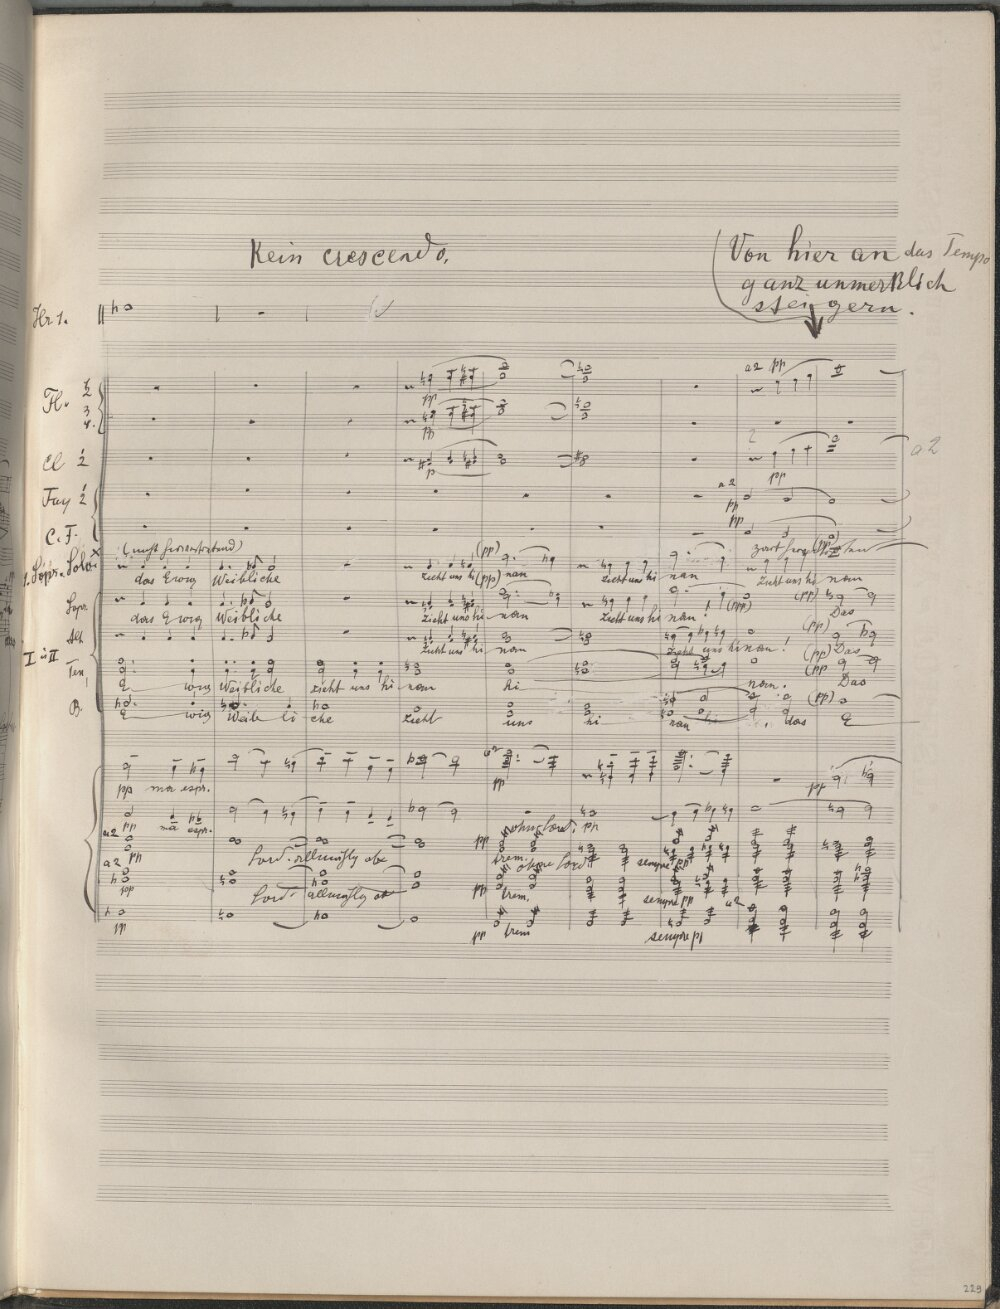 Kein crescendo.
Von hier an das Tempo
ganz unmerklich
steigern.
Hr 1.
a2 pp
Fl. 1 2
3 4.
pp
pp
Cl 1 2
p
2
pp
a2
Fag 1 2
a2
pp
C. F.
pp
1. Sopr. Solo x
(pp)
zart
(pp)
das Ewig Weibliche zieht uns hi nan zieht uns hi nan zieht uns hi nan
Sopr.
(pp) (pp) (pp)
das Ewig Weibliche zieht uns hi nan zieht uns hi nan! Das
Alt
(pp)
zieht uns hi nan zieht uns hi nan! Das
I u II
Ten.
(pp)
E wig Weibliche zieht uns hi nan hi nan. Das
B.
(pp)
E wig Weib li che zieht uns hi nan das E
pp mo espr. pp pp
a2 pp mo espr. ohne Sord. pp
a2 pp Sord. allmählig ab pp trem. ohne Sord sempre pp
pp Sord. allmählig ab pp trem. sempre pp a2
pp pp trem sempre pp
229